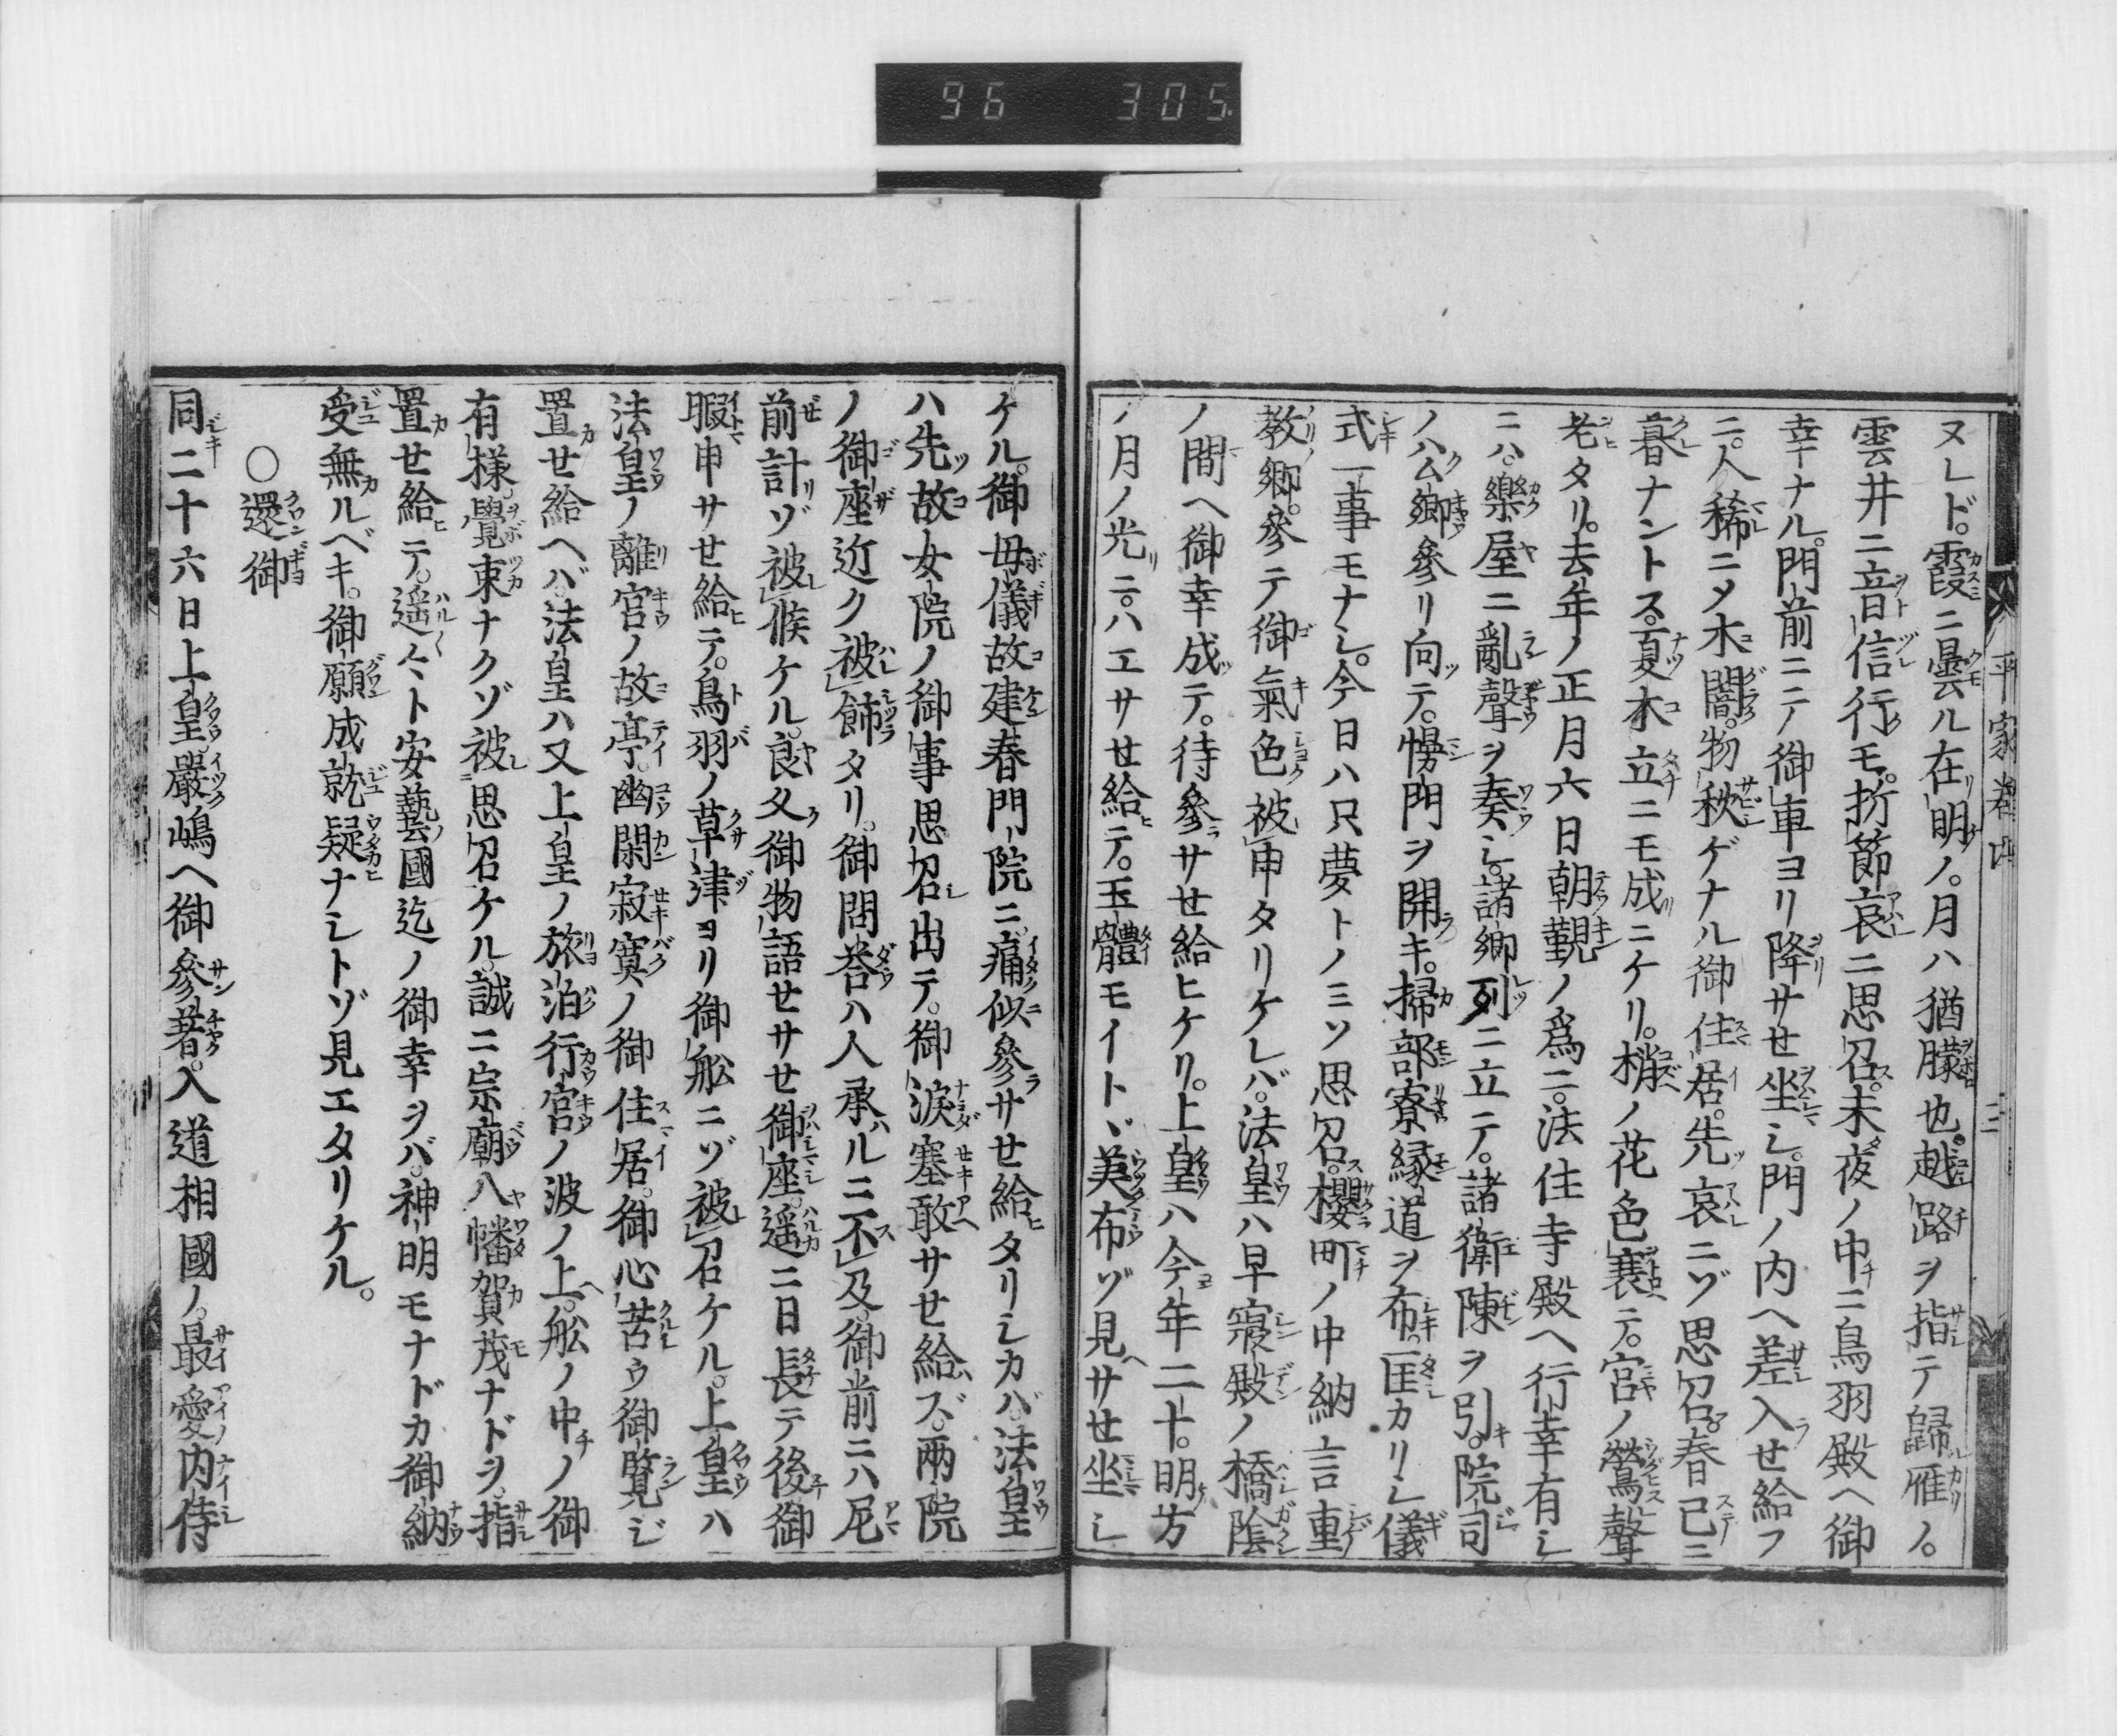 96 305
平家卷四 三
ヌレド。霞ニ曇ル在明ノ。月ハ猶朦也。越路ヲ指テ歸雁ノ。
雲井ニ音信行モ。折節哀ニ思召。未夜ノ中ニ鳥羽殿ヘ御
幸ナル。門前ニテ御車ヨリ降サセ坐シ。門ノ内ヘ差入セ給フ
ニ。人稀ニメ木闇。物秋ゲナル御住居。先哀ニゾ思召。春已ニ
暮ナントス。夏木立ニモ成ニケリ。梢ノ花色衰テ。宮ノ鶯聲
老タリ。去年ノ正月六日朝覲ノ爲ニ。法住寺殿ヘ行幸有シ
ニハ。樂屋ニ亂聲ヲ奏シ。諸卿列ニ立テ。諸衛陳ヲ引。院司
ノハム卿參リ向テ。幔門ヲ開キ。掃部寮縁道ヲ布。匡カリシ儀
式一事モナシ。今日ハ只夢トノミソ思召。櫻町ノ中納言重
教卿。參テ御氣色被申タリケレバ。法皇ハ早寢殿ノ橋隠
ノ間ヘ御幸成テ。待參サせ給ヒケリ。上皇ハ今年二十。明方
ノ月ノ光ニ。ハエサせ給テ。玉體モイトヾ美布ゾ見サせ坐シ
ケル。御母儀故建春門院ニ。痛似參サせ給タリシカバ。法皇
ハ先故女院ノ御事思召出テ。御涙塞敢サせ給ハズ。兩院
ノ御座近ク被飾タリ。御問答ハ人承ルニ不及。御前ニハ尼
前計リゾ被候ケル。良久御物語せサせ御座。遥ニ日長テ後御
暇申サせ給テ。鳥羽ノ草津ヨリ御舩ニゾ被召ケル。上皇ハ
法皇ノ離宮ノ故亭。幽閑寂寞ノ御住居。御心苦ウ御覽ジ
置せ給ヘバ。法皇ハ又上皇ノ旅泊行宮ノ波ノ上。舩ノ中ノ御
有様。覺束ナクゾ被思召ケル。誠ニ宗廟八幡賀茂ナドヲ。指
置せ給テ。遥々ト安藝國迄ノ御幸ヲバ。神明モナドカ御納
受無ルベキ。御願成就疑ナシトゾ見エタリケル。
○還御
同二十六日上皇嚴嶋ヘ御參著。入道相國ノ。最愛内侍